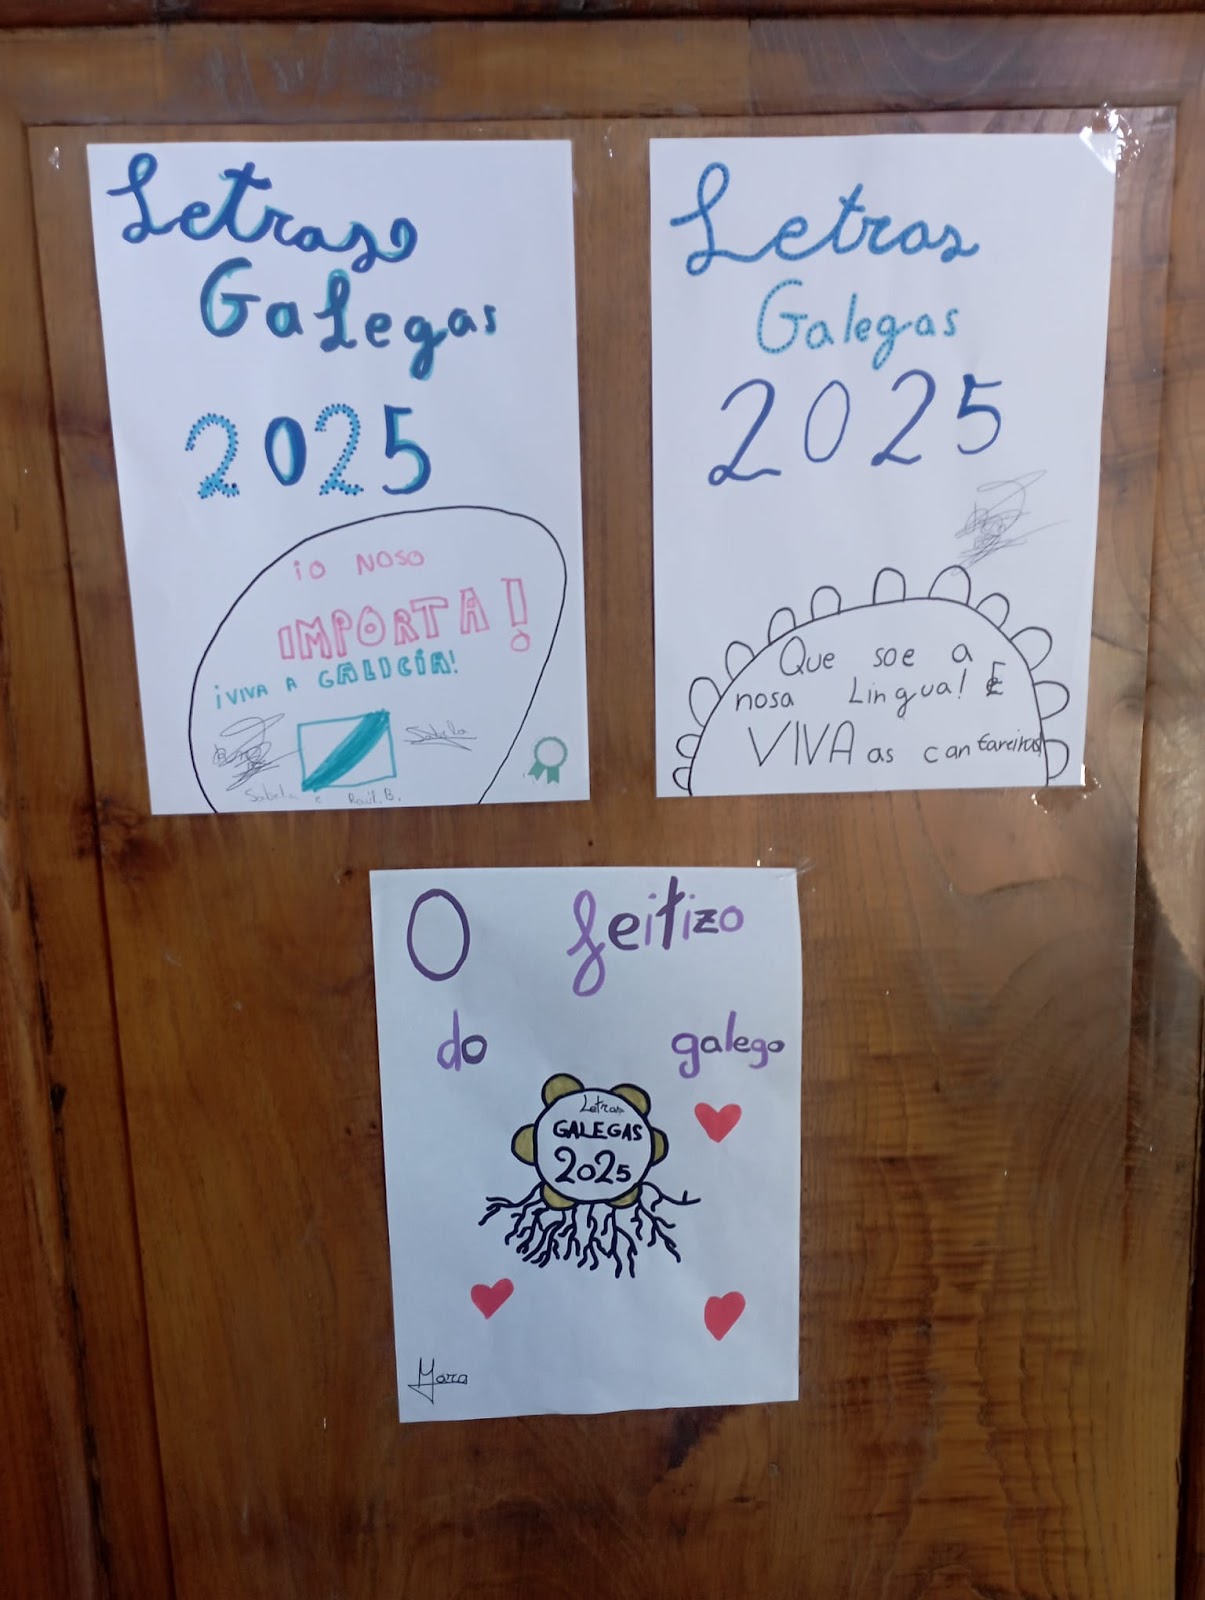 Letras
Galegas
2025
¡O NOSO
IMPORTA!
¡VIVA A GALICIA!
Sabela
Sabela e Raúl.B.
Letras
Galegas
2025
Que soe a
nosa Lingua! E
VIVA as cantareiras
O feitizo
do galego
Letras
GALEGAS
2025
Mara